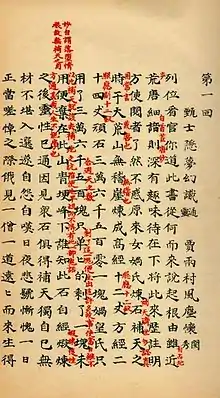 第一回
甄士隱夢幻識通靈　賈雨村風塵懷閨秀
列位看官你道此書從何而來說起根由雖近
荒唐細諳則深有趣味待在下將此來歷註明
方使閱者了然不惑原來女媧氏煉石補天之
時于大荒山無稽崖煉成高經十二丈方經二
照應副十二釵
十四丈頑石三萬六千五百零一塊媧皇氏只
合週天之數
用了三萬六千五百塊只單單的剩了一塊未
妙自謂落墮情
根故無補天之用
用便棄在此山青埂峰下誰知此石自經煆煉
之後靈性已通因見衆石俱得補天獨自己無
材不堪入選遂自怨自嘆日夜悲號慚愧一日
正當嗟悼之際俄見一僧一道遠遠而來生得